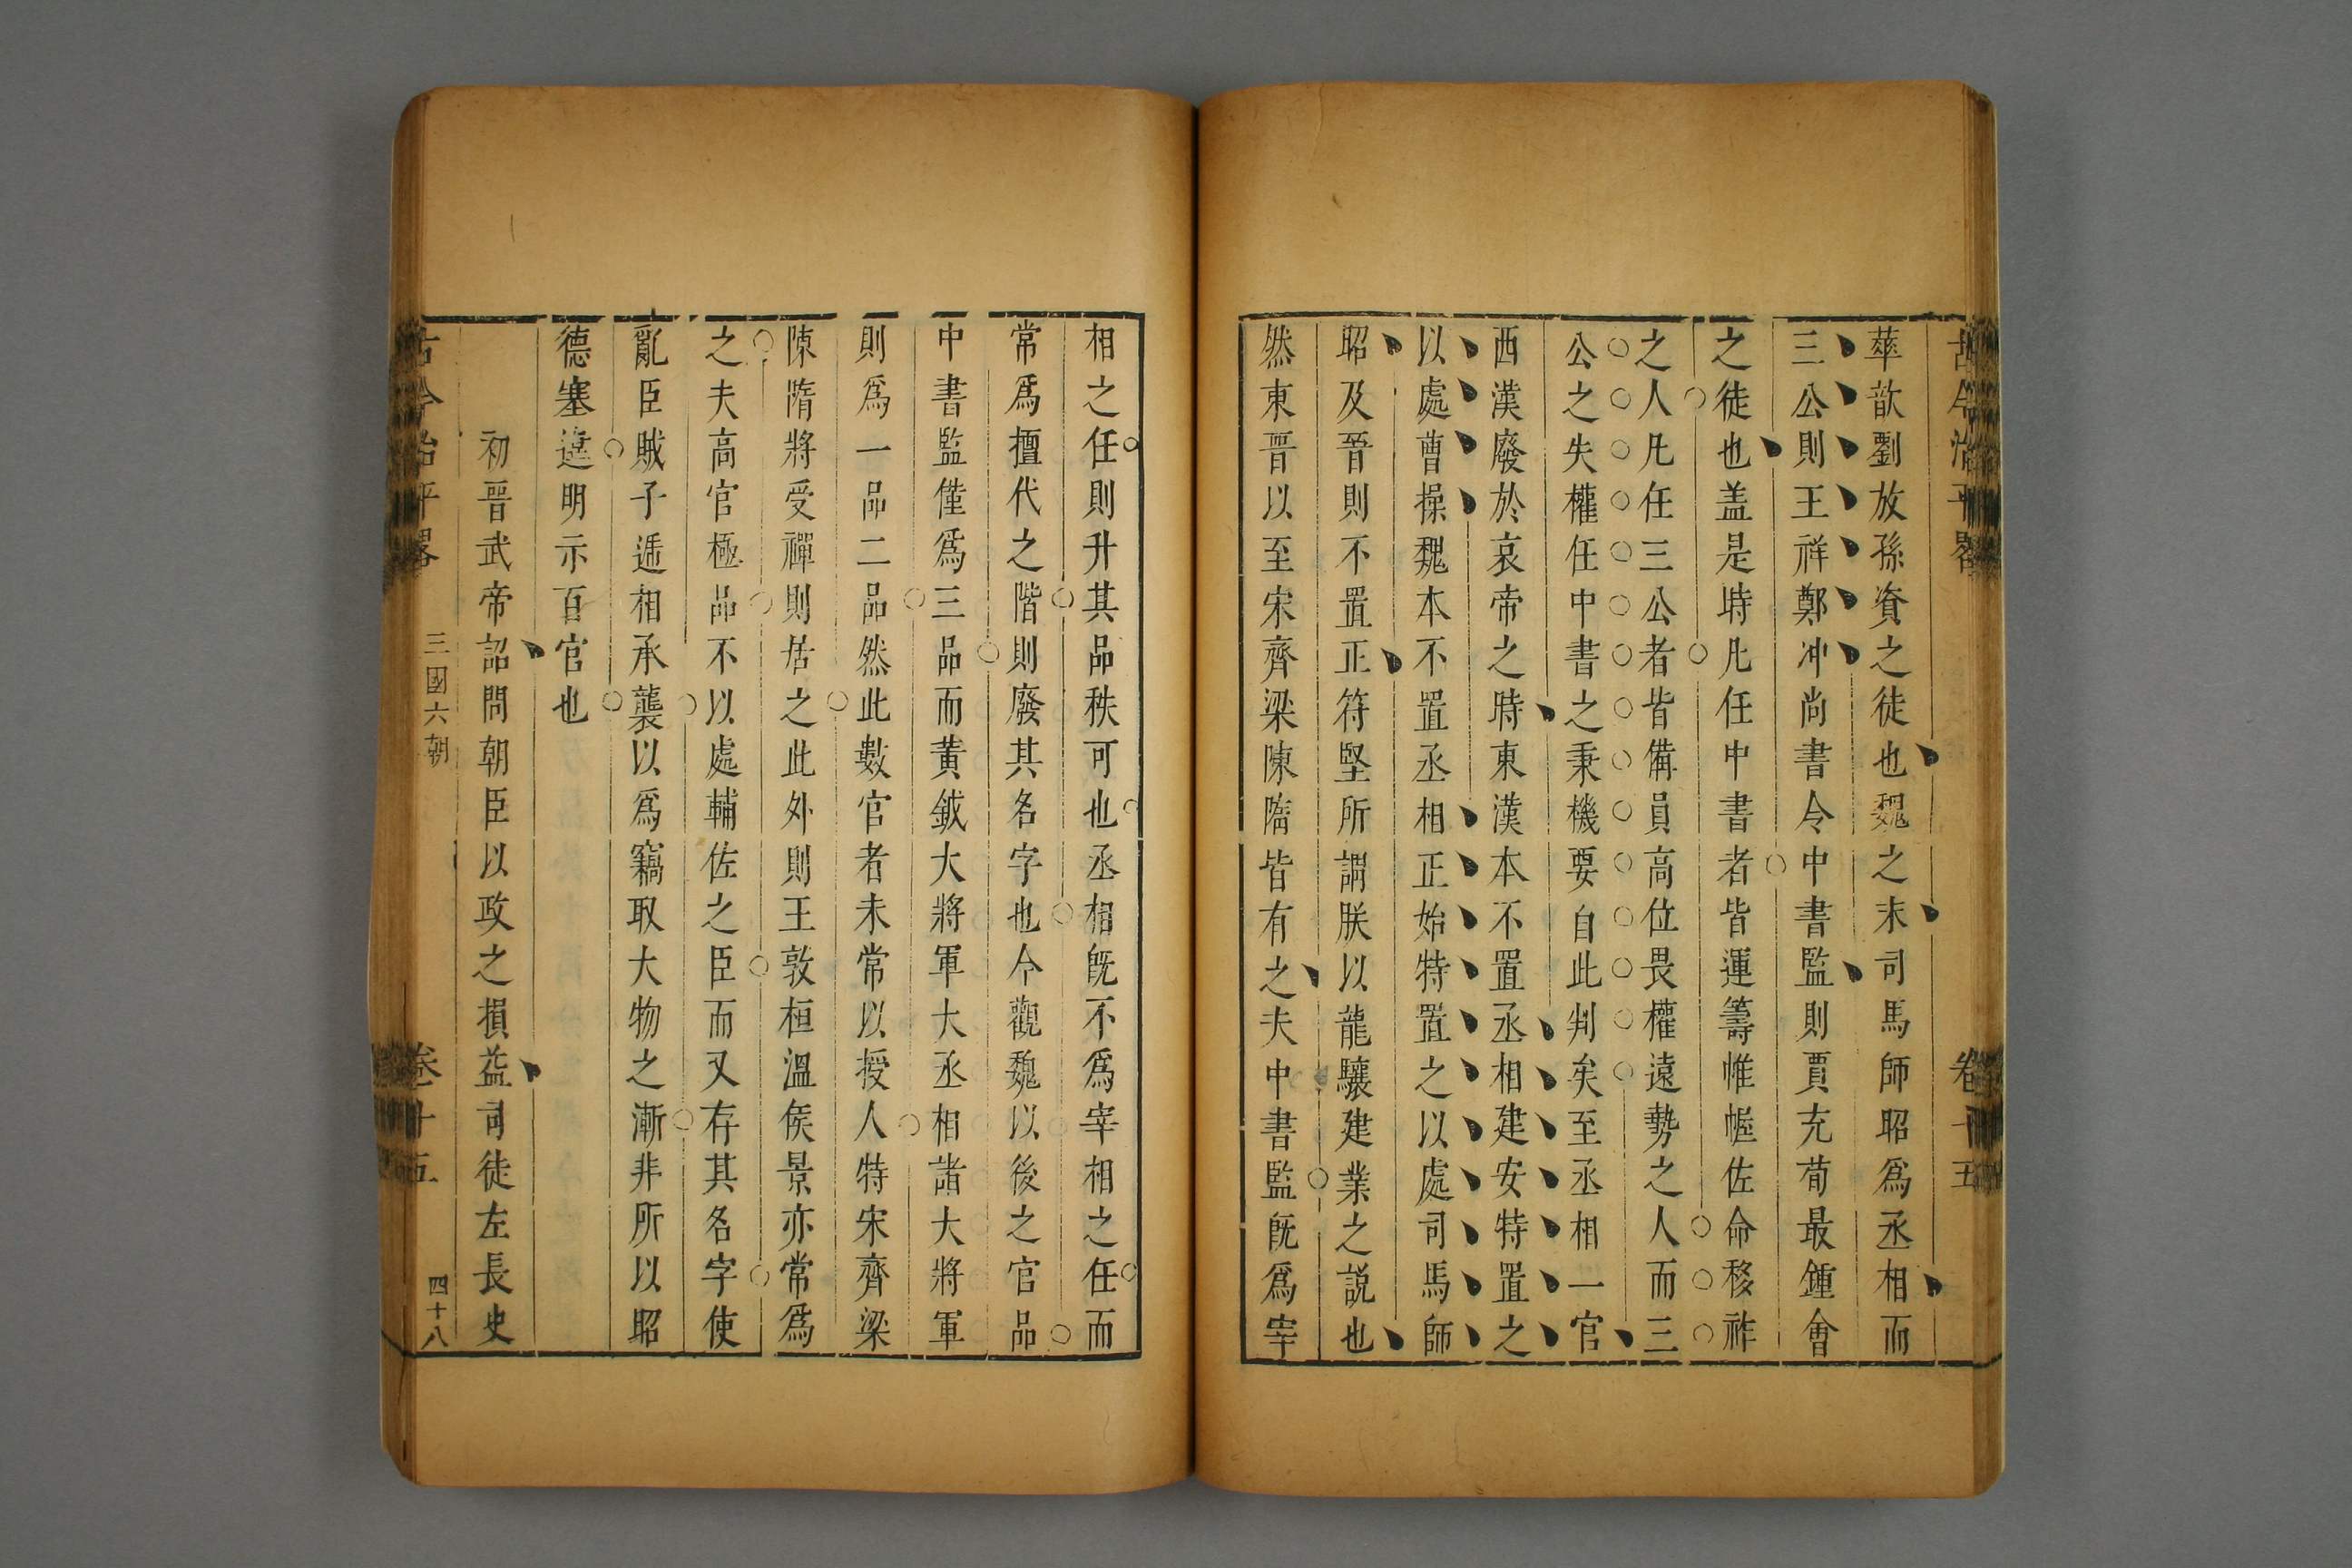 古今治平畧 卷十五
華歆劉放孫資之徒也魏之末司馬師昭爲丞相而
三公則王祥鄭冲尚書令中書監則賈充荀最鍾會
之徒也盖是時凡任中書者皆運籌帷幄佐命移祚
之人凡任三公者皆備員高位畏權遠勢之人而三
公之失權任中書之秉機要自此判矣至丞相一官
西漢廢於哀帝之時東漢本不置丞相建安特置之
以處曹操魏本不置丞相正始特置之以處司馬師
昭及晉則不置正符堅所謂朕以龍驤建業之說也
然東晉以至宋齊梁陳隋皆有之夫中書監旣爲宰
相之任則升其品秩可也丞相旣不爲宰相之任而
常爲擅代之階則廢其名字也今觀魏以後之官品
中書監僅爲三品而黃鉞大將軍大丞相諸大將軍
則爲一品二品然此數官者未常以授人特宋齊梁
陳隋將受禪則居之此外則王敦桓溫侯景亦常爲
之夫高官極品不以處輔佐之臣而又存其名字使
亂臣賊子遞相承襲以爲竊取大物之漸非所以昭
德塞違明示百官也
初晉武帝詔問朝臣以政之損益司徒左長史
古今治平畧 三國六朝 卷十五 四十八